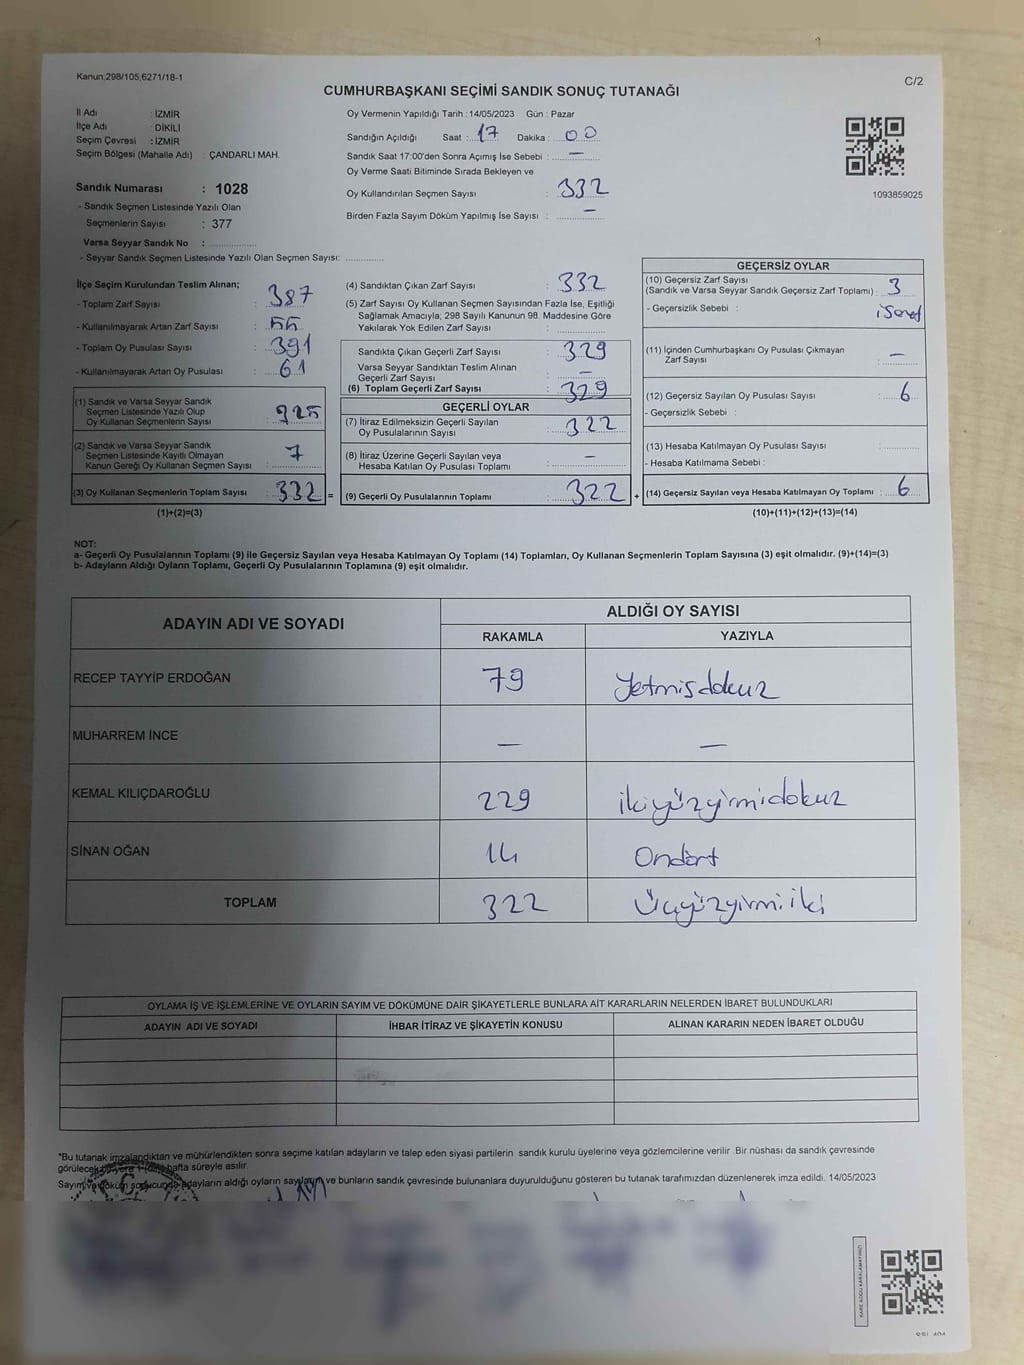 Kanun;298/105,6271/18-1
C/2
CUMHURBAŞKANI SEÇİMİ SANDIK SONUÇ TUTANAĞI
İl Adı : İZMİR
İlçe Adı : DİKİLİ
Seçim Çevresi : İZMİR
Seçim Bölgesi (Mahalle Adı) : ÇANDARLI MAH.
Sandık Numarası : 1028
- Sandık Seçmen Listesinde Yazılı Olan
Seçmenlerin Sayısı : 377
Varsa Seyyar Sandık No :
- Seyyar Sandık Seçmen Listesinde Yazılı Olan Seçmen Sayısı:
Oy Vermenin Yapıldığı Tarih : 14/05/2023 Gün : Pazar
Sandığın Açıldığı Saat : 17 Dakika : 00
Sandık Saat 17:00'den Sonra Açımış İse Sebebi : —
Oy Verme Saati Bitiminde Sırada Bekleyen ve
Oy Kullandırılan Seçmen Sayısı : 332
Birden Fazla Sayım Döküm Yapılmış İse Sayısı : —
1093859025
İlçe Seçim Kurulundan Teslim Alınan;
- Toplam Zarf Sayısı : 387
- Kullanılmayarak Artan Zarf Sayısı : 55
- Toplam Oy Pusulası Sayısı : 391
- Kullanılmayarak Artan Oy Pusulası : 61
(1) Sandık ve Varsa Seyyar Sandık
Seçmen Listesinde Yazılı Olup
Oy Kullanan Seçmenlerin Sayısı : 325
(2) Sandık ve Varsa Seyyar Sandık
Seçmen Listesinde Kayıtlı Olmayan
Kanun Gereği Oy Kullanan Seçmen Sayısı : 7
(3) Oy Kullanan Seçmenlerin Toplam Sayısı : 332 =
(1)+(2)=(3)
(4) Sandıktan Çıkan Zarf Sayısı : 332
(5) Zarf Sayısı Oy Kullanan Seçmen Sayısından Fazla İse, Eşitliği
Sağlamak Amacıyla; 298 Sayılı Kanunun 98. Maddesine Göre
Yakılarak Yok Edilen Zarf Sayısı :
Sandıkta Çıkan Geçerli Zarf Sayısı : 329
Varsa Seyyar Sandıktan Teslim Alınan
Geçerli Zarf Sayısı : —
(6) Toplam Geçerli Zarf Sayısı : 329
GEÇERLİ OYLAR
(7) İtiraz Edilmeksizin Geçerli Sayılan
Oy Pusulalarının Sayısı : 322
(8) İtiraz Üzerine Geçerli Sayılan veya
Hesaba Katılan Oy Pusulası Toplamı : —
(9) Geçerli Oy Pusulalarının Toplamı : 322 +
GEÇERSİZ OYLAR
(10) Geçersiz Zarf Sayısı
(Sandık ve Varsa Seyyar Sandık Geçersiz Zarf Toplamı) : 3
- Geçersizlik Sebebi : işaret
(11) İçinden Cumhurbaşkanı Oy Pusulası Çıkmayan
Zarf Sayısı : —
(12) Geçersiz Sayılan Oy Pusulası Sayısı : 6
- Geçersizlik Sebebi :
(13) Hesaba Katılmayan Oy Pusulası Sayısı :
- Hesaba Katılmama Sebebi :
(14) Geçersiz Sayılan veya Hesaba Katılmayan Oy Toplamı : 6
(10)+(11)+(12)+(13)=(14)
NOT:
a- Geçerli Oy Pusulalarının Toplamı (9) ile Geçersiz Sayılan veya Hesaba Katılmayan Oy Toplamı (14) Toplamları, Oy Kullanan Seçmenlerin Toplam Sayısına (3) eşit olmalıdır. (9)+(14)=(3)
b- Adayların Aldığı Oyların Toplamı, Geçerli Oy Pusulalarının Toplamına (9) eşit olmalıdır.
ADAYIN ADI VE SOYADI ALDIĞI OY SAYISI
RAKAMLA YAZIYLA
RECEP TAYYİP ERDOĞAN 79 Yetmişdokuz
MUHARREM İNCE — —
KEMAL KILIÇDAROĞLU 229 ikiyüzyirmidokuz
SİNAN OĞAN 14 Ondört
TOPLAM 322 Üçyüzyirmiiki
OYLAMA İŞ VE İŞLEMLERİNE VE OYLARIN SAYIM VE DÖKÜMÜNE DAİR ŞİKAYETLERLE BUNLARA AİT KARARLARIN NELERDEN İBARET BULUNDUKLARI
ADAYIN ADI VE SOYADI İHBAR İTİRAZ VE ŞİKAYETİN KONUSU ALINAN KARARIN NEDEN İBARET OLDUĞU
*Bu tutanak imzalandıktan ve mühürlendikten sonra seçime katılan adayların ve talep eden siyasi partilerin sandık kurulu üyelerine veya gözlemcilerine verilir .Bir nüshası da sandık çevresinde
görülecek bir yere 1 hafta süreyle asılır.
Sayım ve döküm sonucunda adayların aldığı oyların sayılarını ve bunların sandık çevresinde bulunanlara duyurulduğunu gösteren bu tutanak tarafımızdan düzenlenerek imza edildi. 14/05/2023
KARE KODU KARALAMAYINIZ!